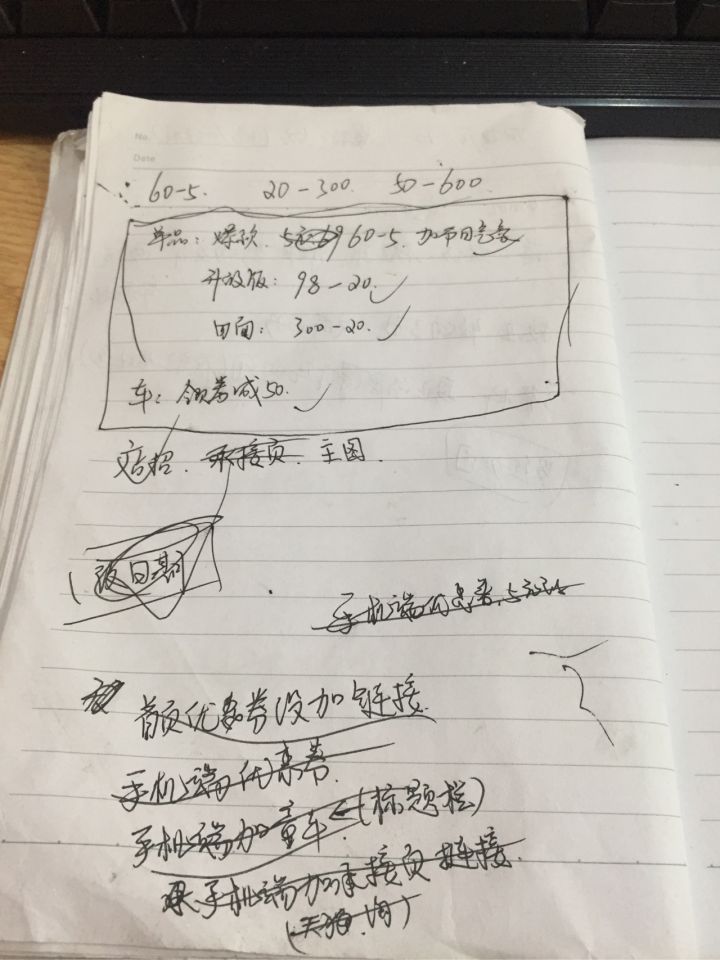 No.
Date
60-5. 20-300. 50-600.
单品: 爆款. 60-5. 加节日
升放版: 98-20.
田面: 300-20.
车: 领券减50.
店招. 承接页. 主图.
改日期
手机端优惠券.
首页优惠券没加链接.
手机端优惠券.
手机端加童车←(标题栏)
手机端加承接页 链接.
(天猫.淘)